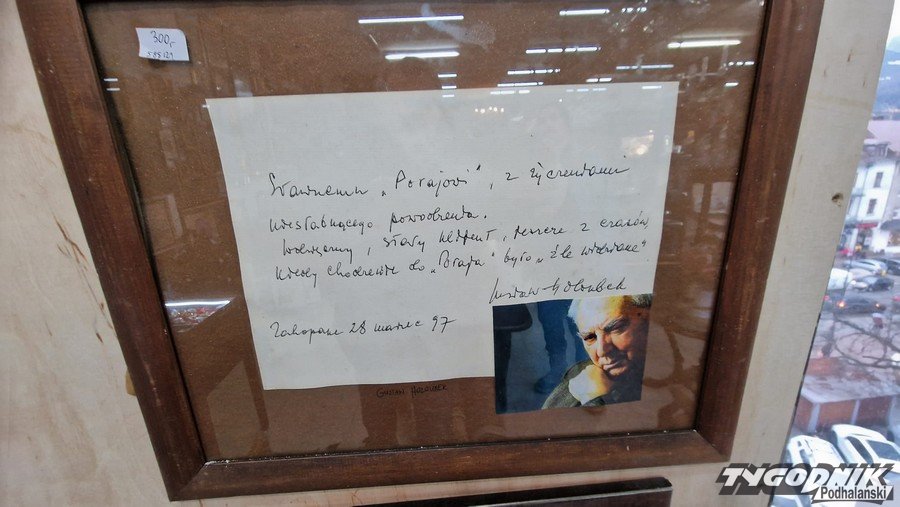 300,-
585121
Sławnemu „Porajowi", z życzeniami
niesłabnącego powodzenia.
Wdzięczny, stary klient, jeszcze z czasów,
kiedy chodzenie do „Poraja" było „źle widziane".
Gustaw Holoubek
Zakopane 28 marzec 97
GUSTAW HOLOUBEK
TYGODNIK
Podhalański